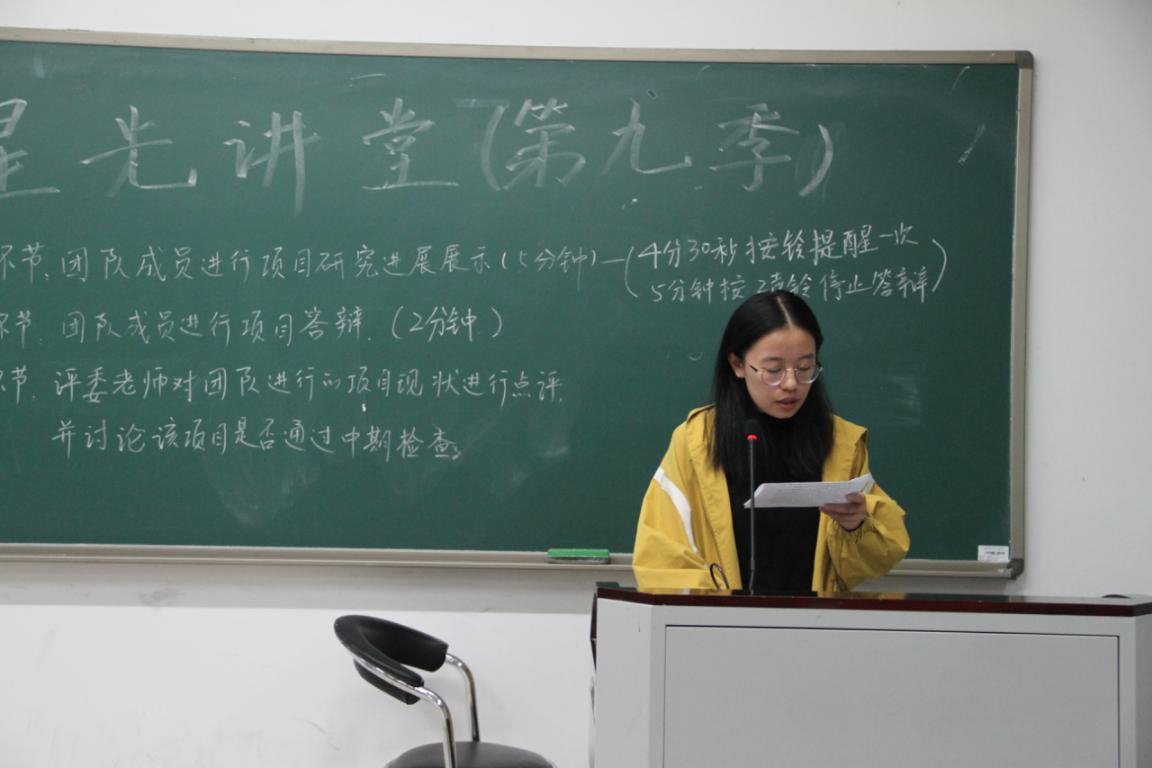 星光讲堂(第九季)
环节.团队成员进行项目研究进展展示(5分钟)—(4分30秒按铃提醒一次
5分钟按 铃停止答辩)
环节.团队成员进行项目答辩.(2分钟.)
环节.评委老师对团队进行的项目现状进行点评,
并讨论该项目是否通过中期检查。